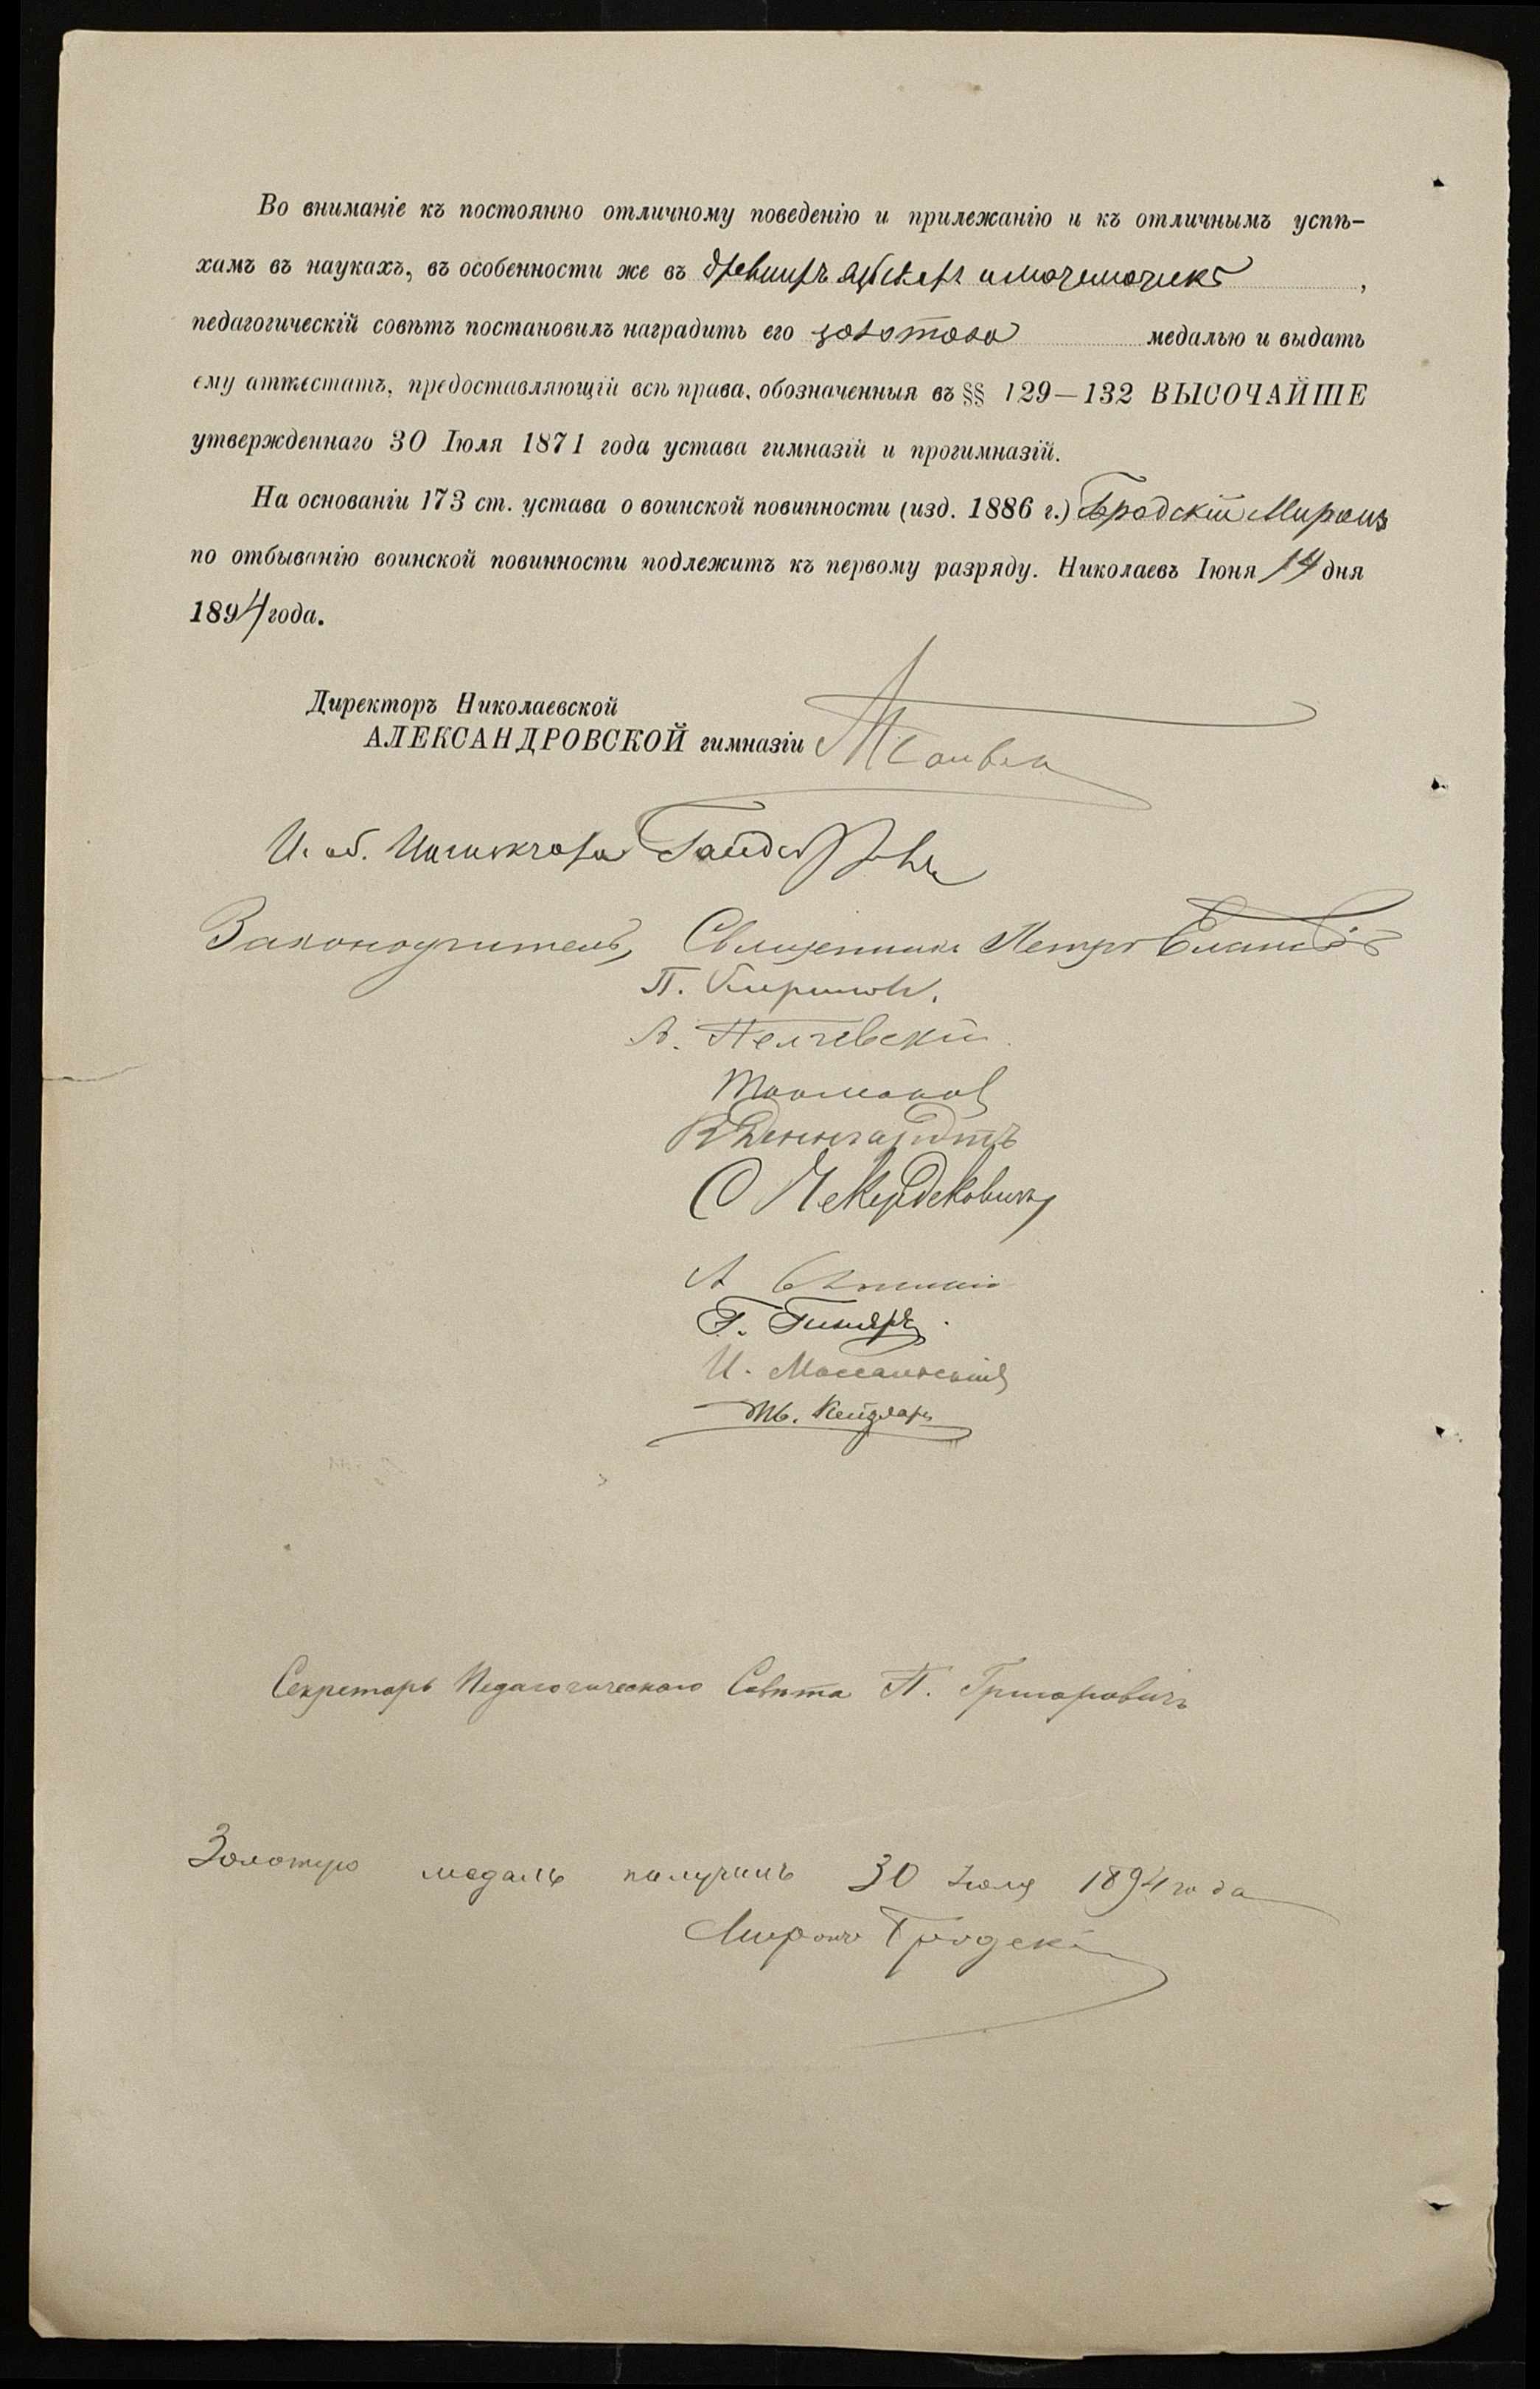 Во вниманіе къ постоянно отличному поведенію и прилежанію и къ отличнымъ успѣ-
хамъ въ наукахъ, въ особенности же въ древнихъ языкахъ и математикѣ,
педагогическій совѣтъ постановилъ наградить его золотою медалью и выдать
ему аттестатъ, предоставляющій всѣ права, обозначенныя въ §§ 129—132 ВЫСОЧАЙШЕ
утвержденнаго 30 Іюля 1871 года устава гимназій и прогимназій.
На основаніи 173 ст. устава о воинской повинности (изд. 1886 г.) Бродскій Миронъ
по отбыванію воинской повинности подлежитъ къ первому разряду. Николаевъ Іюня 14 дня
1894 года.
Директоръ Николаевской
АЛЕКСАНДРОВСКОЙ гимназіи
И. об. Инспектора
Законоучитель, Священникъ Петръ Еланскій
П.
А.
В.
С Чекердековичъ
А
Г.
И. Массальскій
Секретарь Педагогическаго Совѣта П. Григоровичъ
Золотую медаль получилъ 30 Іюля 1894 года
Миронъ Бродскій